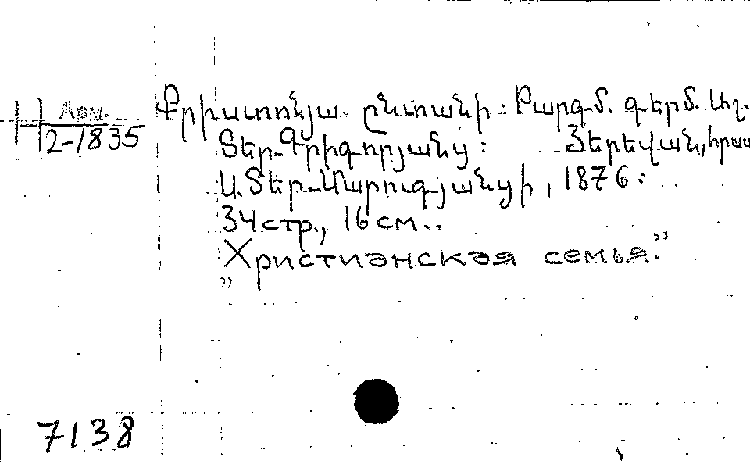 Арм.
2-1835
Քրիստոնյա ընտանի: Թարգմ. գերմ. Աղ.
Տեր-Գրիգորյանց: Երեվան, հրատ
Ա. Տեր-Մարուգյանցի, 1876:
34 стр., 16 см..
„Христианская семья.”
7138